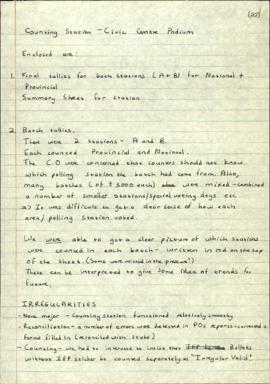 (20)
Counting Station - Civic Centre Podium
Enclosed are:
1. Final tallies for both stations (A+B) for National +
Provincial
Summary Sheet for station
2. Batch tallies.
There were 2 stations - A and B.
Each counted Provincial and National.
The C.O were concerned that counters should not know
which polling station the batch had come from. Also,
many batches (of ± 3000 each) were mixed - combined
a number of smaller stations/special voting days etc
It was difficult to get a clear sense of how each
area/polling station voted.
We were able to get a clear picture of which stations
were counted in each batch - written in red on the top
of the sheet. (Some were missed in the pressure!)
These can be interpreted to give some idea of trends for
future.
IRREGULARITIES
- None major - Counting station functioned relatively smoothly
- Reconciliation - a number of errors were detected in POs reports - corrected &
forms filled in (reconciled with stubs)
- Counting - we had to intervene to insist that Ballots
without IFP sticker be counted separately as "Irregular Valid".